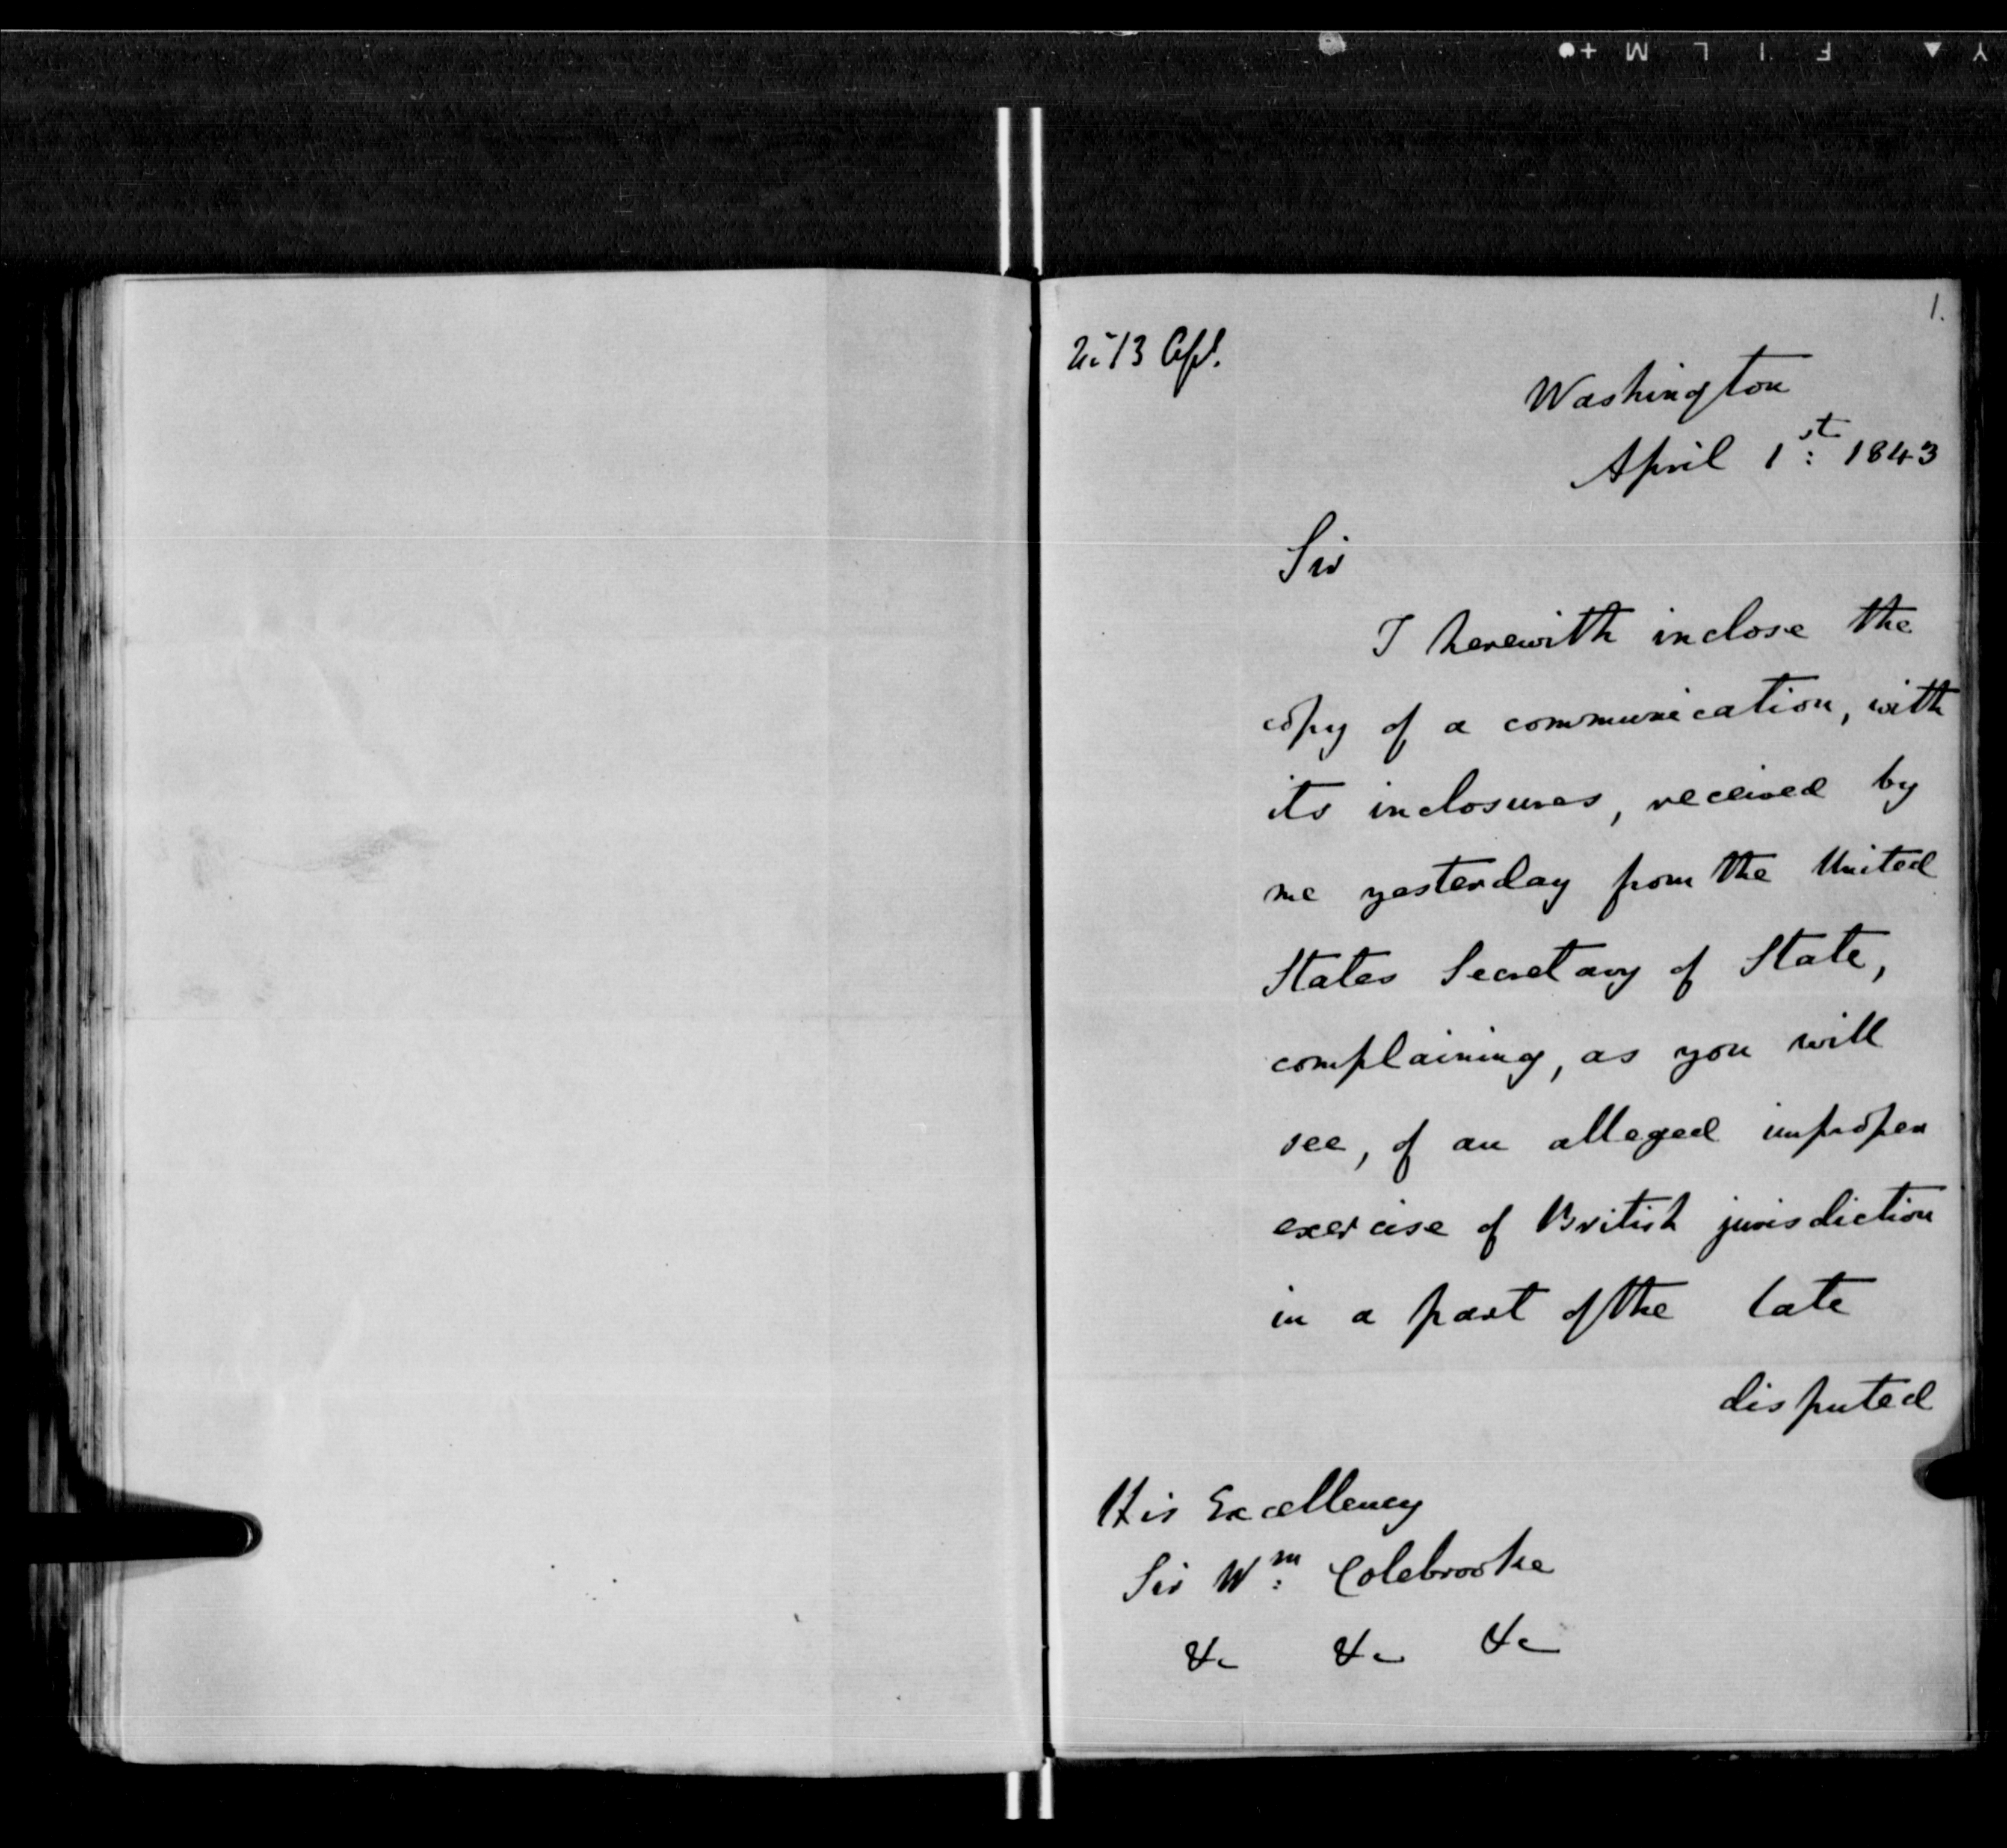 1.
13 Apl.
Washington
April 1st: 1843
Sir
I herewith inclose the
copy of a communication, with
its inclosures, received by
me yesterday from the United
States Secretary of State,
complaining, as you will
see, of an alleged improper
exercise of British jurisdiction
in a part of the late
disputed
His Excellency
Sir Wm: Colebrooke
&c &c &c